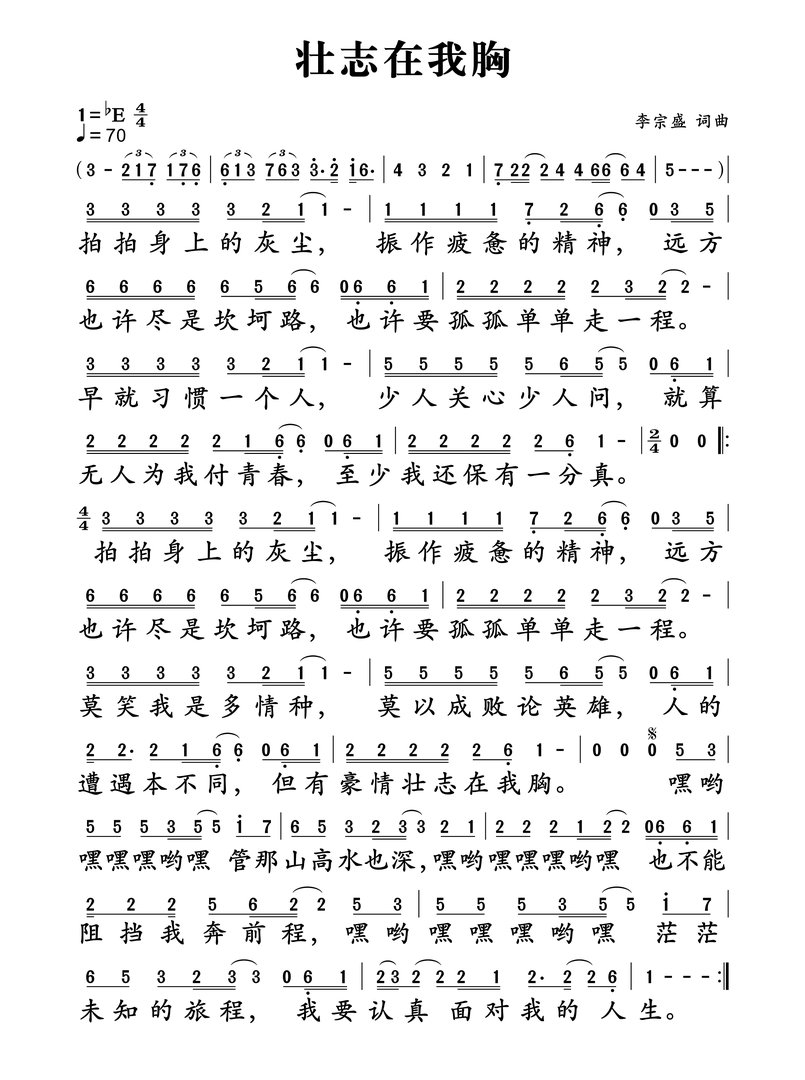 壮志在我胸
1=♭E 4/4
♩=70
李宗盛 词曲
(3 - 217 176 | 613 763 3·2 16· | 4 3 2 1 | 722 24 466 64 | 5--- )|
3 3 3 3 3 2 1 1 - | 1 1 1 1 7 2 6 6 0 3 5 |
拍拍身上的灰尘, 振作疲惫的精神, 远方
6 6 6 6 6 5 6 6 06 6 1 | 2 2 2 2 2 3 2 2 - |
也许尽是坎坷路, 也许要孤孤单单走一程。
3 3 3 3 3 2 1 1 - | 5 5 5 5 5 6 5 5 0 6 1 |
早就习惯一个人, 少人关心少人问, 就算
2 2 2 2 2 1 6 6 0 6 1 | 2 2 2 2 2 6 1 - | 2/4 0 0 ‖:
无人为我付青春, 至少我还保有一分真。
4/4 3 3 3 3 3 2 1 1 - | 1 1 1 1 7 2 6 6 0 3 5 |
拍拍身上的灰尘, 振作疲惫的精神, 远方
6 6 6 6 6 5 6 6 06 6 1 | 2 2 2 2 2 3 2 2 - |
也许尽是坎坷路, 也许要孤孤单单走一程。
3 3 3 3 3 2 1 1 - | 5 5 5 5 5 6 5 5 0 6 1 |
莫笑我是多情种, 莫以成败论英雄, 人的
2 2· 2 1 6 6 0 6 1 | 2 2 2 2 2 6 1 - | 0 0 0 5 3 |
遭遇本不同, 但有豪情壮志在我胸。 嘿哟
5 5 5 3 5 5 1 7 | 6 5 3 2 3 3 2 1 | 2 2 2 1 2 2 06 6 1 |
嘿嘿嘿哟嘿 管那山高水也深,嘿哟嘿嘿嘿哟嘿 也不能
2 2 2 5 6 2 2 5 3 | 5 5 5 3 5 5 1 7 |
阻挡我奔前程, 嘿哟嘿嘿嘿哟嘿 茫茫
6 5 3 2 3 3 0 6 1 | 23 2 2 2 1 2· 2 2 6 | 1--- :‖
未知的旅程, 我要认真 面对我的 人生。